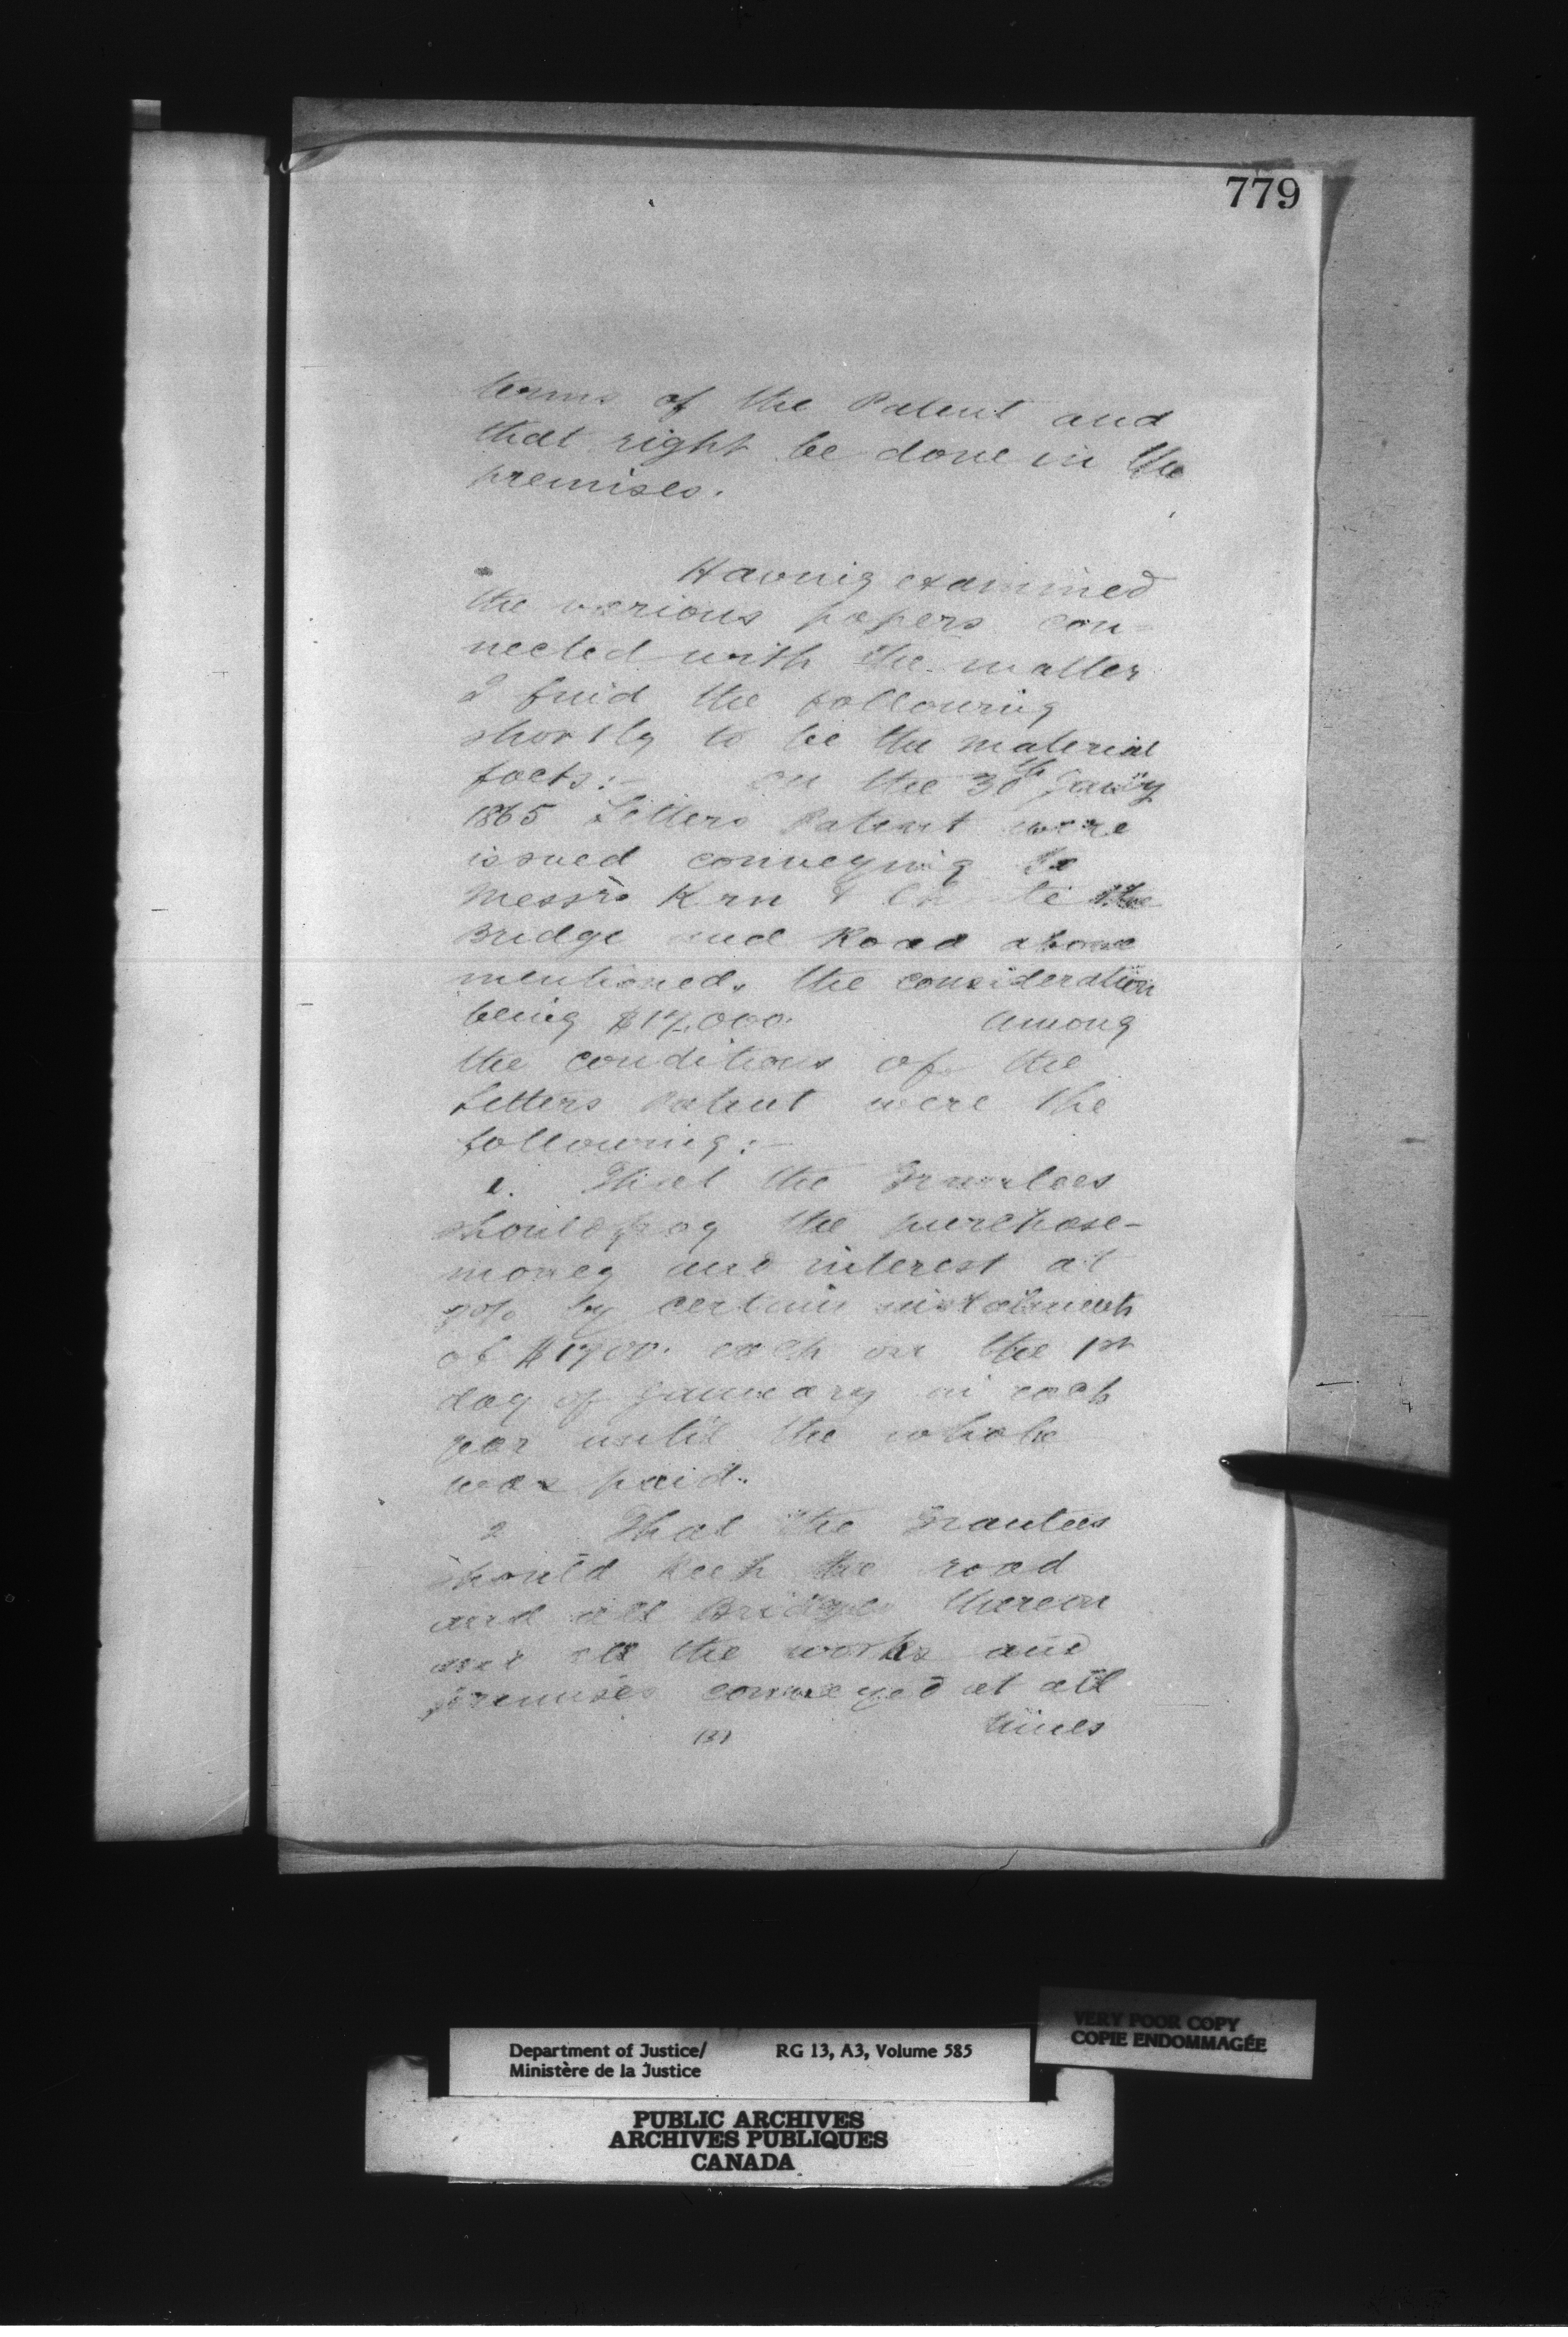 779
terms of the Patent and
that right be done in the
premises.
Having examined
the various papers con=
nected with the matter
I find the following
shortly to be the material
facts:- On the 30th Jan'y
1865 Letters Patent were
issued conveying to
Messrs & the
Bridge and Road above
mentioned, the consideration
being $17,000. Among
the conditions of the
Letters Patent were the
following:-
1. That the Grantees
should pay the purchase-
money and interest at
% by certain instalments
of $1700. each on the 1st
day of January in each
year until the whole
was paid.
2 That the Grantees
should keep the road
and all Bridges thereon
and all the works and
premises conveyed at all
times
(3)
VERY POOR COPY
COPIE ENDOMMAGÉE
Department of Justice/ RG 13, A3, Volume 585
Ministère de la Justice
PUBLIC ARCHIVES
ARCHIVES PUBLIQUES
CANADA